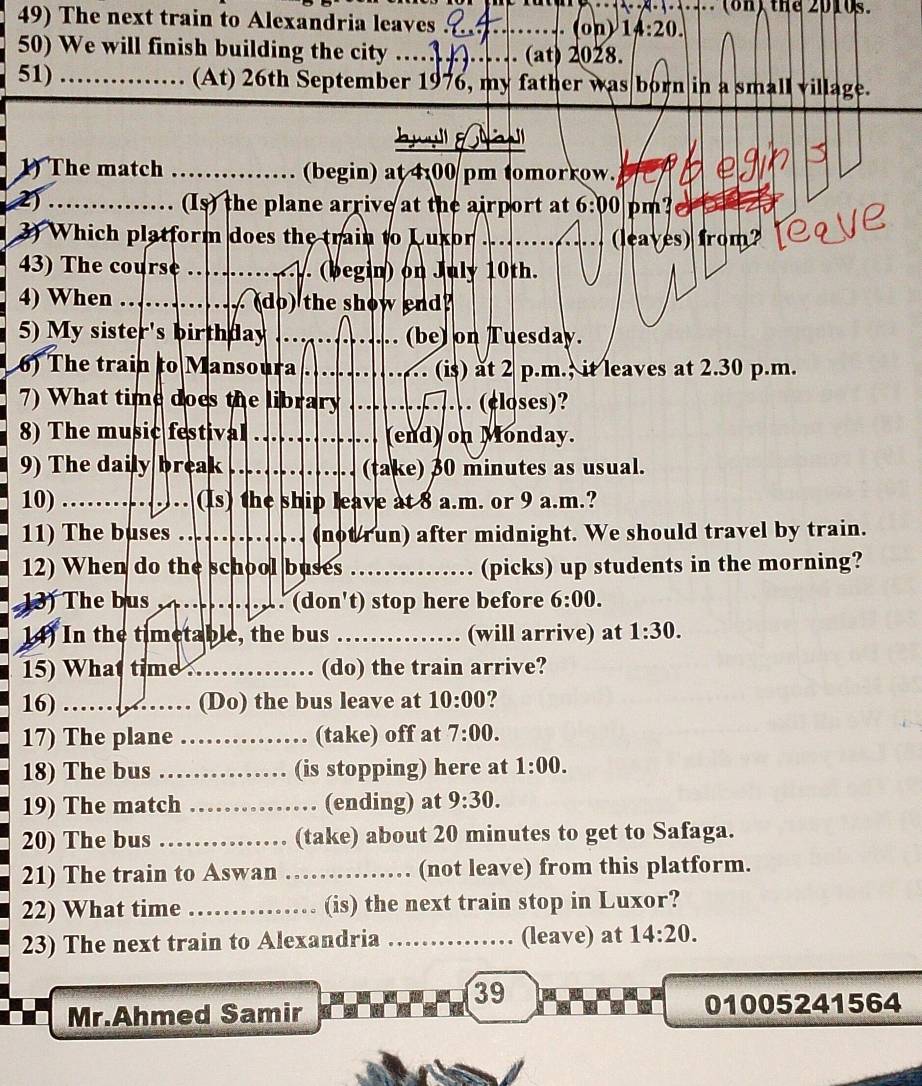 (on) the 2010s.
49) The next train to Alexandria leaves ............... (on) 14:20. at
50) We will finish building the city ............... (at) 2028. in
51) ............... (At) 26th September 1976, my father was born in a small village.
المضارع البسيط
1) The match ............... (begin) at 4:00 pm tomorrow. begins
2) ............... (Is) the plane arrive at the airport at 6:00 pm?
3) Which platform does the train to Luxor ............... (leaves) from? leave
43) The course ............... (begin) on July 10th.
4) When ............... (do) the show end?
5) My sister's birthday ............... (be) on Tuesday.
6) The train to Mansoura ............... (is) at 2 p.m.; it leaves at 2.30 p.m.
7) What time does the library ............... (closes)?
8) The music festival ............... (end) on Monday.
9) The daily break ............... (take) 30 minutes as usual.
10) ............... (Is) the ship leave at 8 a.m. or 9 a.m.?
11) The buses ............... (not/run) after midnight. We should travel by train.
12) When do the school buses ............... (picks) up students in the morning?
13) The bus ............... (don't) stop here before 6:00.
14) In the timetable, the bus ............... (will arrive) at 1:30.
15) What time ............... (do) the train arrive?
16) ............... (Do) the bus leave at 10:00?
17) The plane ............... (take) off at 7:00.
18) The bus ............... (is stopping) here at 1:00.
19) The match ............... (ending) at 9:30.
20) The bus ............... (take) about 20 minutes to get to Safaga.
21) The train to Aswan ............... (not leave) from this platform.
22) What time ............... (is) the next train stop in Luxor?
23) The next train to Alexandria ............... (leave) at 14:20.
Mr.Ahmed Samir 39 01005241564